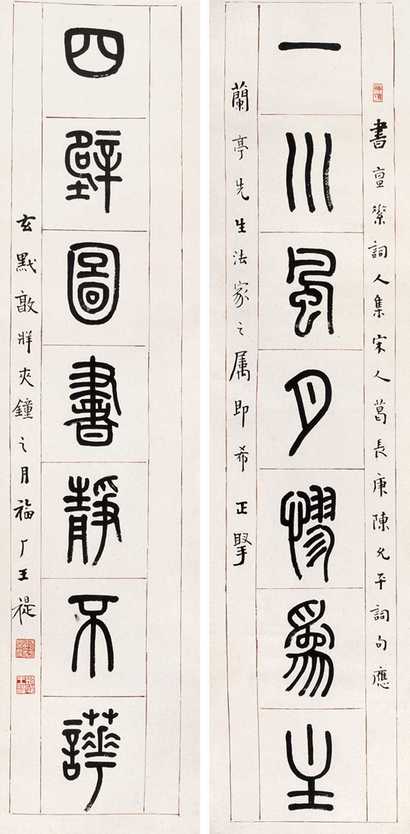 書亶素詞人集宋人葛長庚陳允平詞句應
一川風月憀為主
蘭亭先生法家之屬即希正掔
四壁圖書靜不譁
玄黓敦牂夾鐘之月福厂王禔